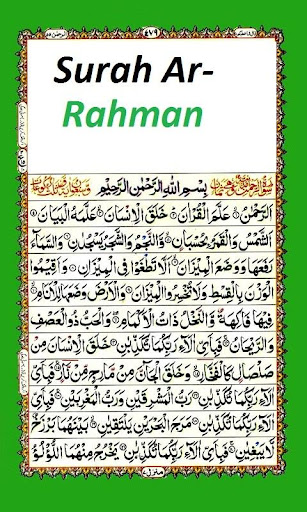 ٤٧٩
Surah Ar-
Rahman
بِسْمِ اللّٰهِ الرَّحْمٰنِ الرَّحِيْمِ
اَلرَّحْمٰنُ عَلَّمَ الْقُرْاٰنَ خَلَقَ الْاِنْسَانَ عَلَّمَهُ الْبَيَانَ
اَلشَّمْسُ وَالْقَمَرُ بِحُسْبَانٍ وَّالنَّجْمُ وَالشَّجَرُ يَسْجُدٰنِ وَالسَّمَآءَ
رَفَعَهَا وَوَضَعَ الْمِيْزَانَ اَلَّا تَطْغَوْا فِي الْمِيْزَانِ وَاَقِيْمُوا
الْوَزْنَ بِالْقِسْطِ وَلَا تُخْسِرُوا الْمِيْزَانَ وَالْاَرْضَ وَضَعَهَا لِلْاَنَامِ
فِيْهَا فَاكِهَةٌ وَّالنَّخْلُ ذَاتُ الْاَكْمَامِ وَالْحَبُّ ذُو الْعَصْفِ
وَالرَّيْحَانُ فَبِاَيِّ اٰلَآءِ رَبِّكُمَا تُكَذِّبٰنِ خَلَقَ الْاِنْسَانَ مِنْ
صَلْصَالٍ كَالْفَخَّارِ وَخَلَقَ الْجَآنَّ مِنْ مَّارِجٍ مِّنْ نَّارٍ فَبِاَيِّ
اٰلَآءِ رَبِّكُمَا تُكَذِّبٰنِ رَبُّ الْمَشْرِقَيْنِ وَرَبُّ الْمَغْرِبَيْنِ فَبِاَيِّ
اٰلَآءِ رَبِّكُمَا تُكَذِّبٰنِ مَرَجَ الْبَحْرَيْنِ يَلْتَقِيٰنِ بَيْنَهُمَا بَرْزَخٌ
لَّا يَبْغِيٰنِ فَبِاَيِّ اٰلَآءِ رَبِّكُمَا تُكَذِّبٰنِ يَخْرُجُ مِنْهُمَا اللُّؤْلُؤُ